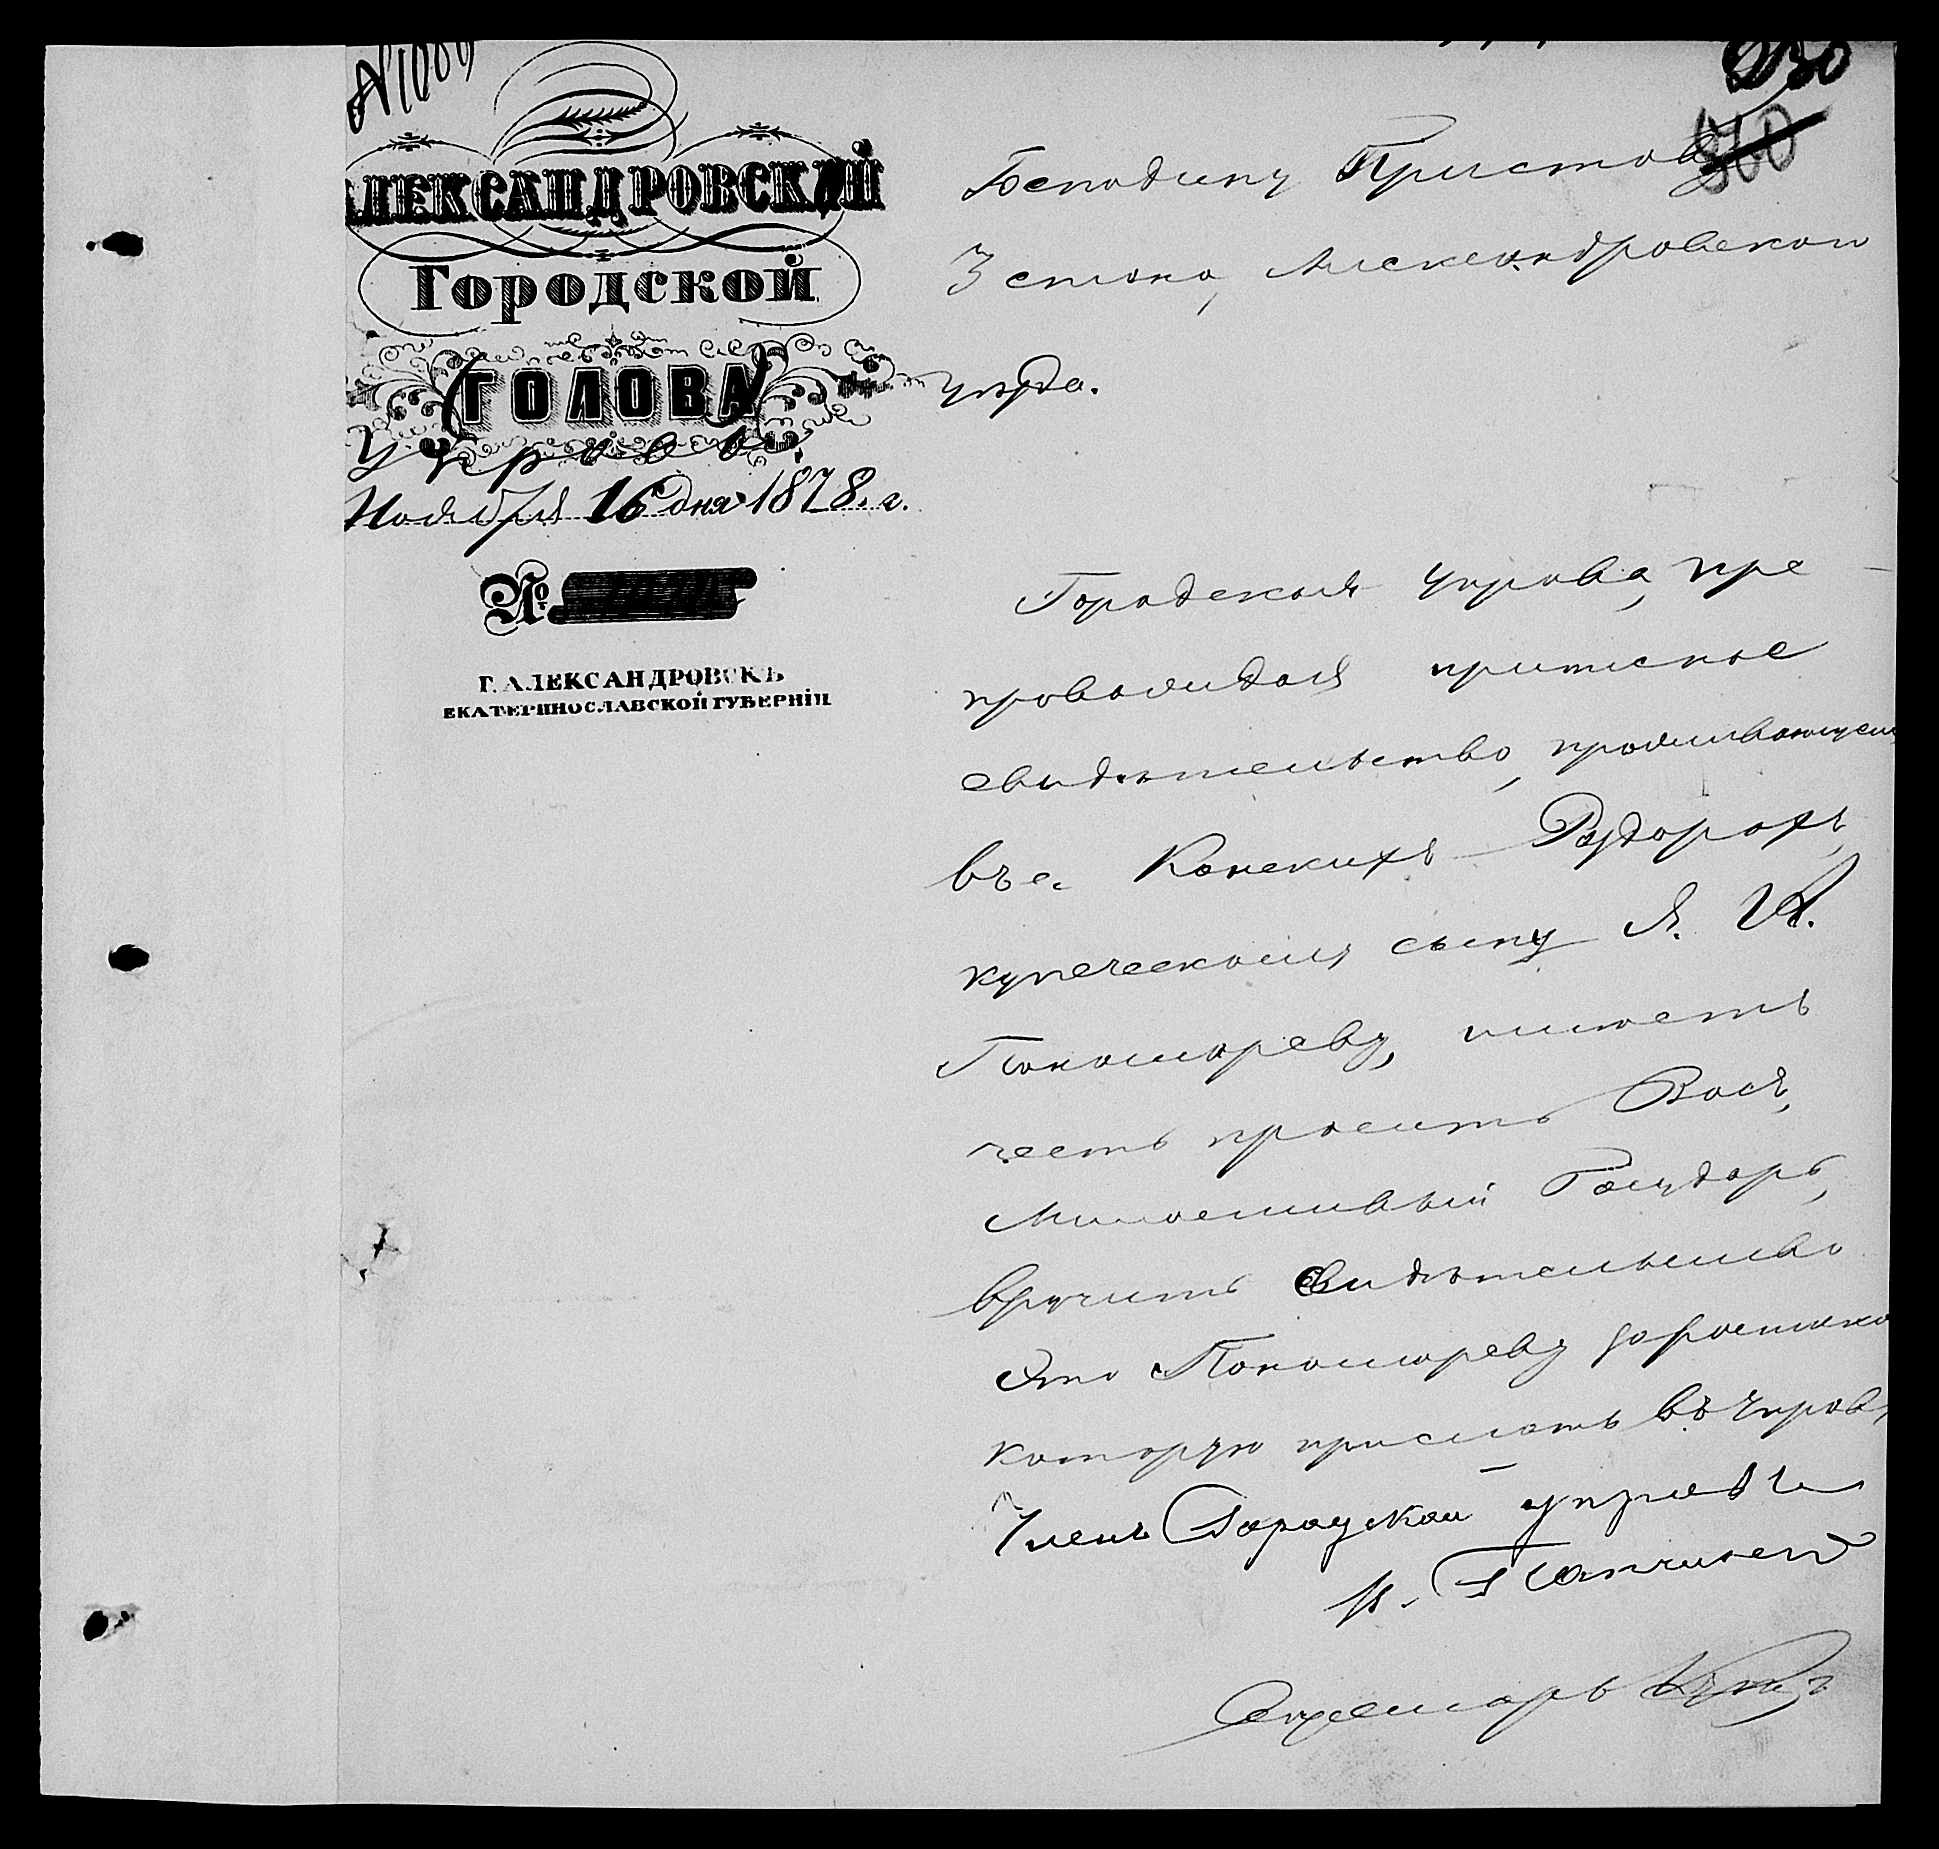 № 1000
230
360
АЛЕКСАНДРОВСКІЙ
Городской
ГОЛОВА
Управа
Ноября 16 дня 1878 г.
№
Г. АЛЕКСАНДРОВСКЪ
ЕКАТЕРИНОСЛАВСКОЙ ГУБЕРНІИ
Господину Приставу
3 стана, Александровскаго
уѣзда.
Городская Управа, пре-
провождая приписное
свидѣтельство, проживающему
въ с. Конскихъ Раздорахъ,
купеческому сыну Я. И.
Пономареву, имѣетъ
честь просить Васъ,
Милостивый Государь,
вручить свидѣтельство
это Пономареву росписка
которую прислать въ Управу
Членъ Городской управы
Секретарь